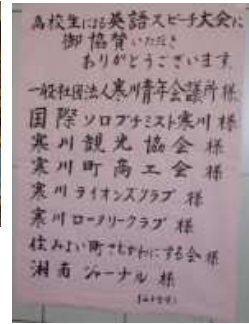 高校生による英語スピーチ大会に
御協賛いただき
ありがとうございます
一般社団法人寒川青年会議所様
国際ソロプチミスト寒川様
寒川観光協会様
寒川町商工会様
寒川ライオンズクラブ様
寒川ロータリークラブ様
住みよい町さむかわにする会様
湘南ジャーナル様